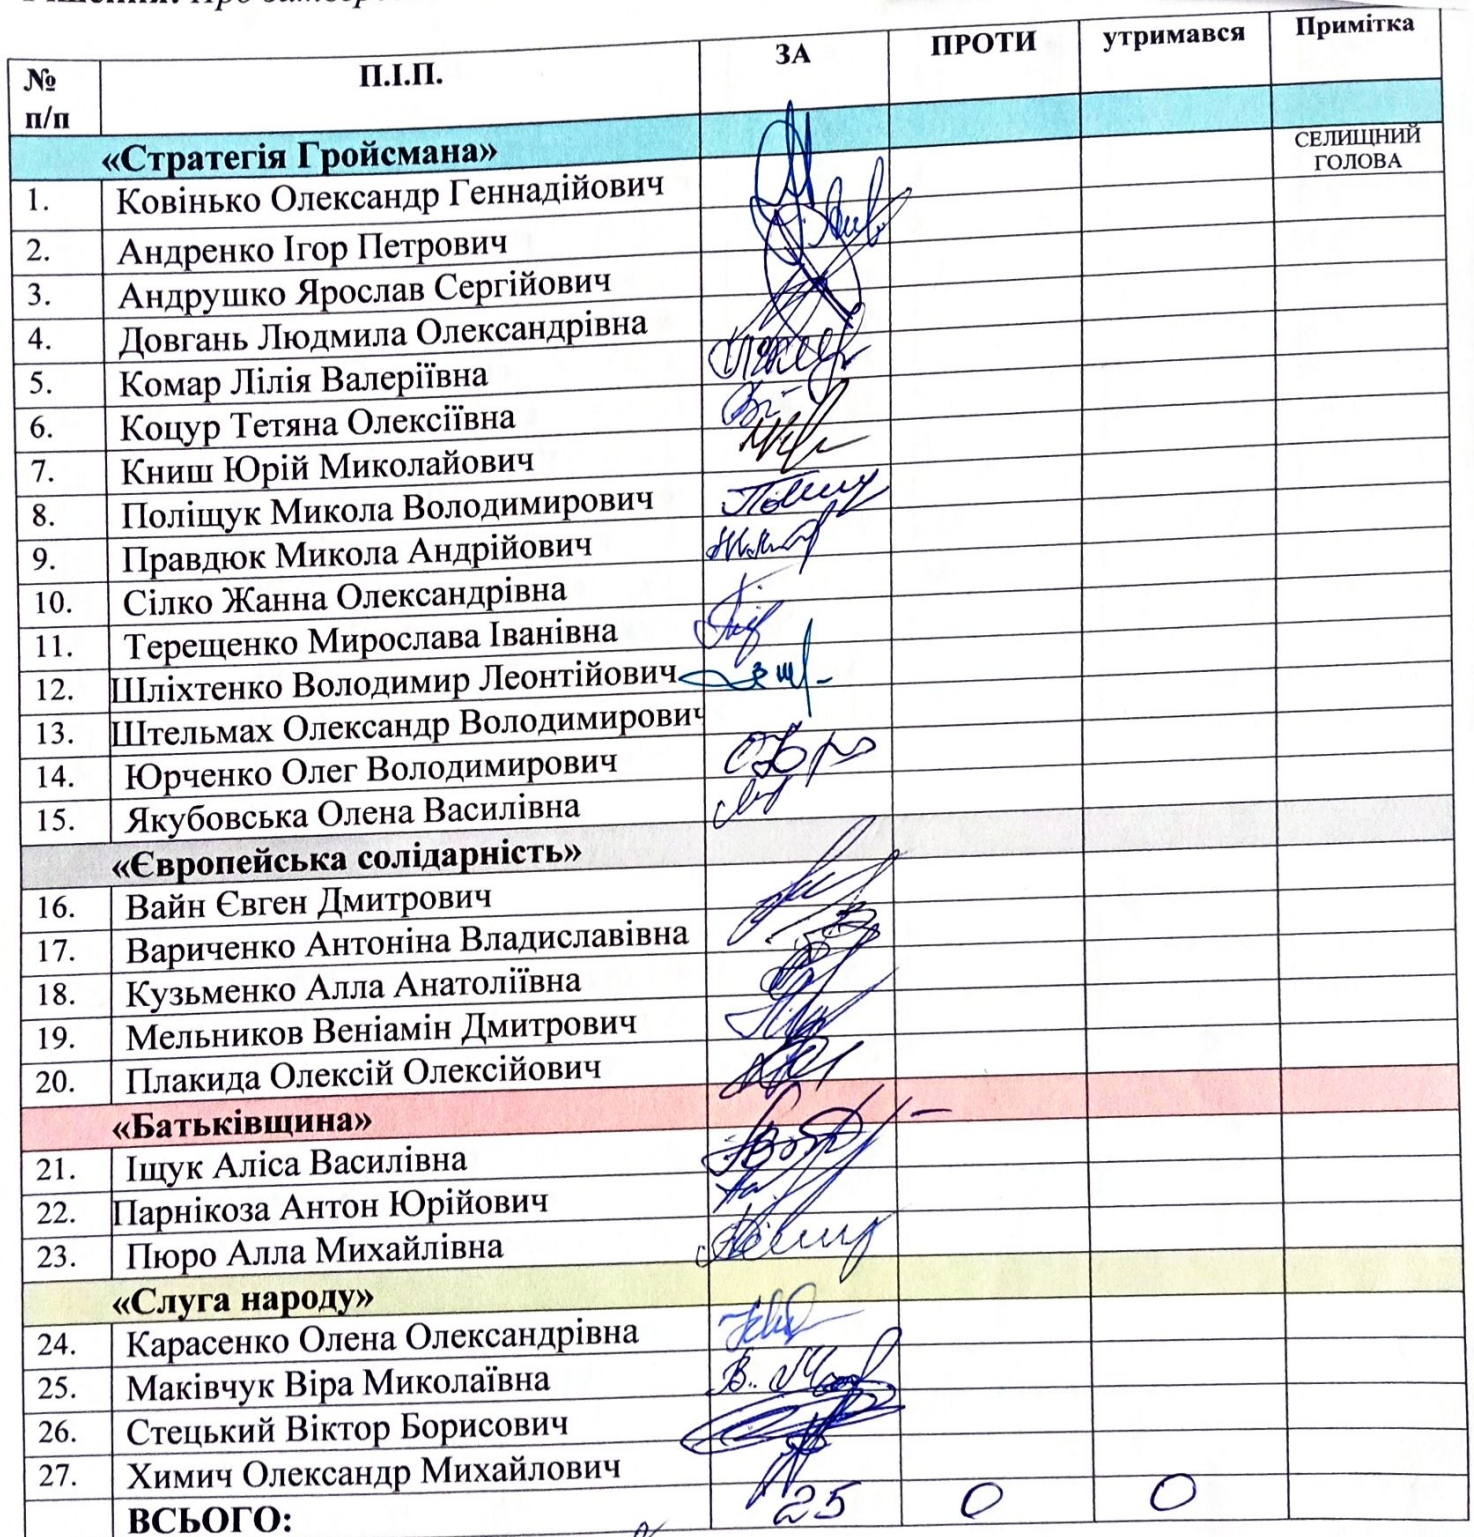 № п/п П.І.П. ЗА ПРОТИ утримався Примітка
«Стратегія Гройсмана»
1. Ковінько Олександр Геннадійович СЕЛИЩНИЙ ГОЛОВА
2. Андренко Ігор Петрович
3. Андрушко Ярослав Сергійович
4. Довгань Людмила Олександрівна
5. Комар Лілія Валеріївна
6. Коцур Тетяна Олексіївна
7. Книш Юрій Миколайович
8. Поліщук Микола Володимирович
9. Правдюк Микола Андрійович
10. Сілко Жанна Олександрівна
11. Терещенко Мирослава Іванівна
12. Шліхтенко Володимир Леонтійович
13. Штельмах Олександр Володимирович
14. Юрченко Олег Володимирович
15. Якубовська Олена Василівна
«Європейська солідарність»
16. Вайн Євген Дмитрович
17. Вариченко Антоніна Владиславівна
18. Кузьменко Алла Анатоліївна
19. Мельников Веніамін Дмитрович
20. Плакида Олексій Олексійович
«Батьківщина»
21. Іщук Аліса Василівна
22. Парнікоза Антон Юрійович
23. Пюро Алла Михайлівна
«Слуга народу»
24. Карасенко Олена Олександрівна
25. Маківчук Віра Миколаївна
26. Стецький Віктор Борисович
27. Химич Олександр Михайлович
ВСЬОГО: 25 0 0